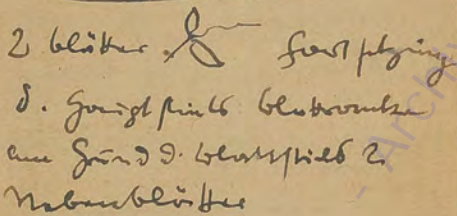 2 Blätter. Fortsetzung
d. Hauptstiels Blattranke
am Grund d. Blattstiels 2
Nebenblätter
Archiv